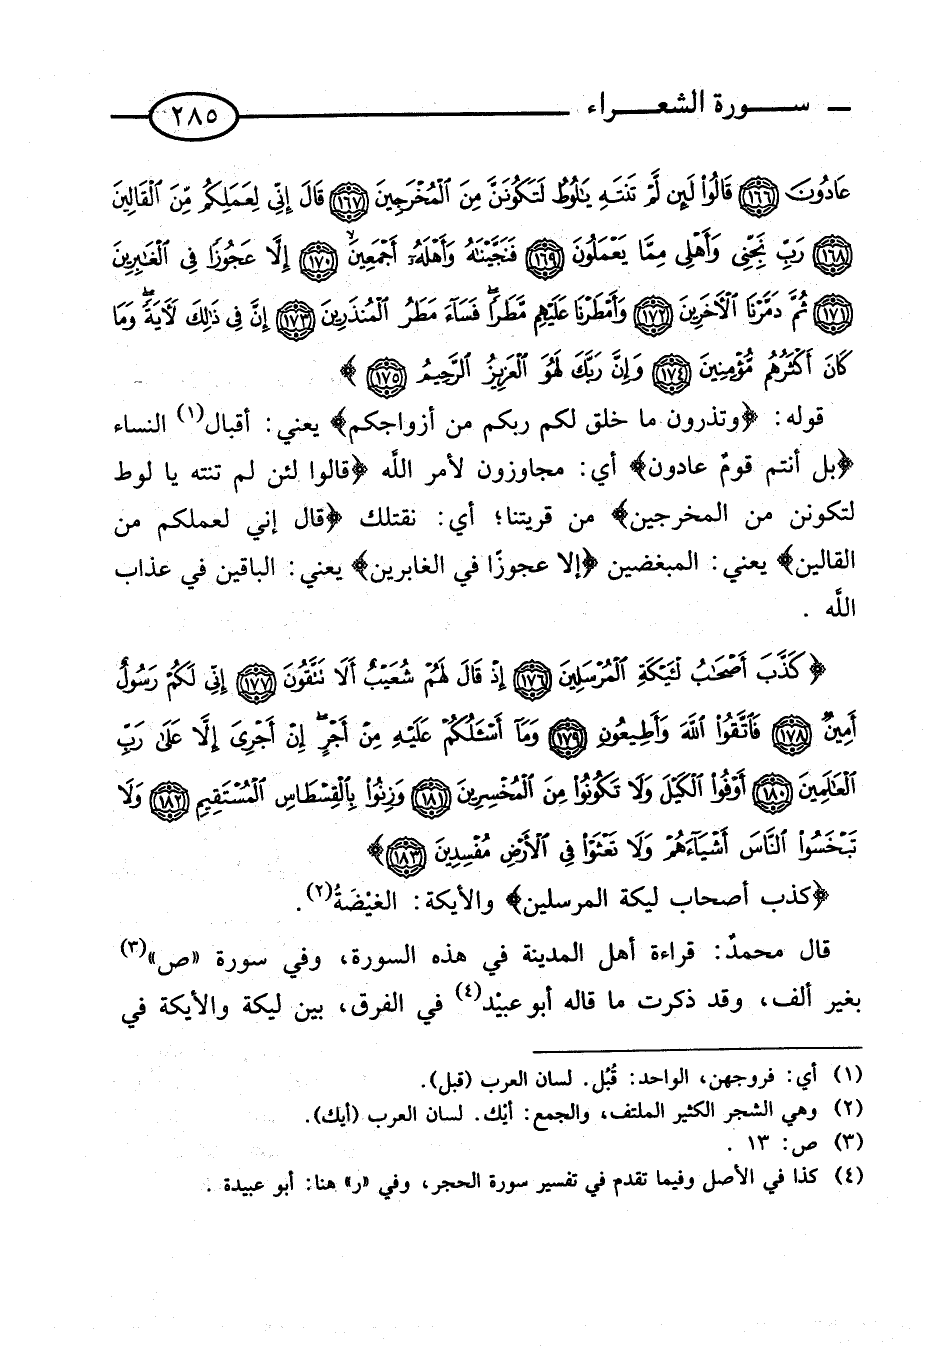 سورة الشعراء ٢٨٥
عَادُونَ ﴿١٦٦﴾ قَالُوا۟ لَئِن لَّمْ تَنتَهِ يَـٰلُوطُ لَتَكُونَنَّ مِنَ ٱلْمُخْرَجِينَ ﴿١٦٧﴾ قَالَ إِنِّى لِعَمَلِكُم مِّنَ ٱلْقَالِينَ
﴿١٦٨﴾ رَبِّ نَجِّنِى وَأَهْلِى مِمَّا يَعْمَلُونَ ﴿١٦٩﴾ فَنَجَّيْنَـٰهُ وَأَهْلَهُۥٓ أَجْمَعِينَ ﴿١٧٠﴾ إِلَّا عَجُوزًا فِى ٱلْغَـٰبِرِينَ
﴿١٧١﴾ ثُمَّ دَمَّرْنَا ٱلْـَٔاخَرِينَ ﴿١٧٢﴾ وَأَمْطَرْنَا عَلَيْهِم مَّطَرًا ۖ فَسَآءَ مَطَرُ ٱلْمُنذَرِينَ ﴿١٧٣﴾ إِنَّ فِى ذَٰلِكَ لَـَٔايَةً ۖ وَمَا
كَانَ أَكْثَرُهُم مُّؤْمِنِينَ ﴿١٧٤﴾ وَإِنَّ رَبَّكَ لَهُوَ ٱلْعَزِيزُ ٱلرَّحِيمُ ﴿١٧٥﴾ ﴾
قوله: ﴿وتذرون ما خلق لكم ربكم من أزواجكم﴾ يعني: أقبال(١) النساء
﴿بل أنتم قومٌ عادون﴾ أي: مجاوزون لأمر اللَّه ﴿قالوا لئن لم تنته يا لوط
لتكونن من المخرجين﴾ من قريتنا؛ أي: نقتلك ﴿قال إني لعملكم من
القالين﴾ يعني: المبغضين ﴿إلا عجوزًا في الغابرين﴾ يعني: الباقين في عذاب
اللَّه .
﴿ كَذَّبَ أَصْحَـٰبُ لْـَٔيْكَةِ ٱلْمُرْسَلِينَ ﴿١٧٦﴾ إِذْ قَالَ لَهُمْ شُعَيْبٌ أَلَا تَتَّقُونَ ﴿١٧٧﴾ إِنِّى لَكُمْ رَسُولٌ
أَمِينٌ ﴿١٧٨﴾ فَٱتَّقُوا۟ ٱللَّهَ وَأَطِيعُونِ ﴿١٧٩﴾ وَمَآ أَسْـَٔلُكُمْ عَلَيْهِ مِنْ أَجْرٍ ۖ إِنْ أَجْرِىَ إِلَّا عَلَىٰ رَبِّ
ٱلْعَـٰلَمِينَ ﴿١٨٠﴾ أَوْفُوا۟ ٱلْكَيْلَ وَلَا تَكُونُوا۟ مِنَ ٱلْمُخْسِرِينَ ﴿١٨١﴾ وَزِنُوا۟ بِٱلْقِسْطَاسِ ٱلْمُسْتَقِيمِ ﴿١٨٢﴾ وَلَا
تَبْخَسُوا۟ ٱلنَّاسَ أَشْيَآءَهُمْ وَلَا تَعْثَوْا۟ فِى ٱلْأَرْضِ مُفْسِدِينَ ﴿١٨٣﴾ ﴾
﴿كذب أصحاب ليكة المرسلين﴾ والأيكة: الغَيْضَةُ(٢).
قال محمدٌ: قراءة أهل المدينة في هذه السورة، وفي سورة «ص»(٣)
بغير ألف، وقد ذكرت ما قاله أبو عبيْد(٤) في الفرق، بين ليكة والأيكة في
(١) أي: فروجهن، الواحد: قُبُل. لسان العرب (قبل).
(٢) وهي الشجر الكثير الملتف، والجمع: أيْك. لسان العرب (أيك).
(٣) ص: ١٣ .
(٤) كذا في الأصل وفيما تقدم في تفسير سورة الحجر، وفي «ر» هنا: أبو عبيدة .